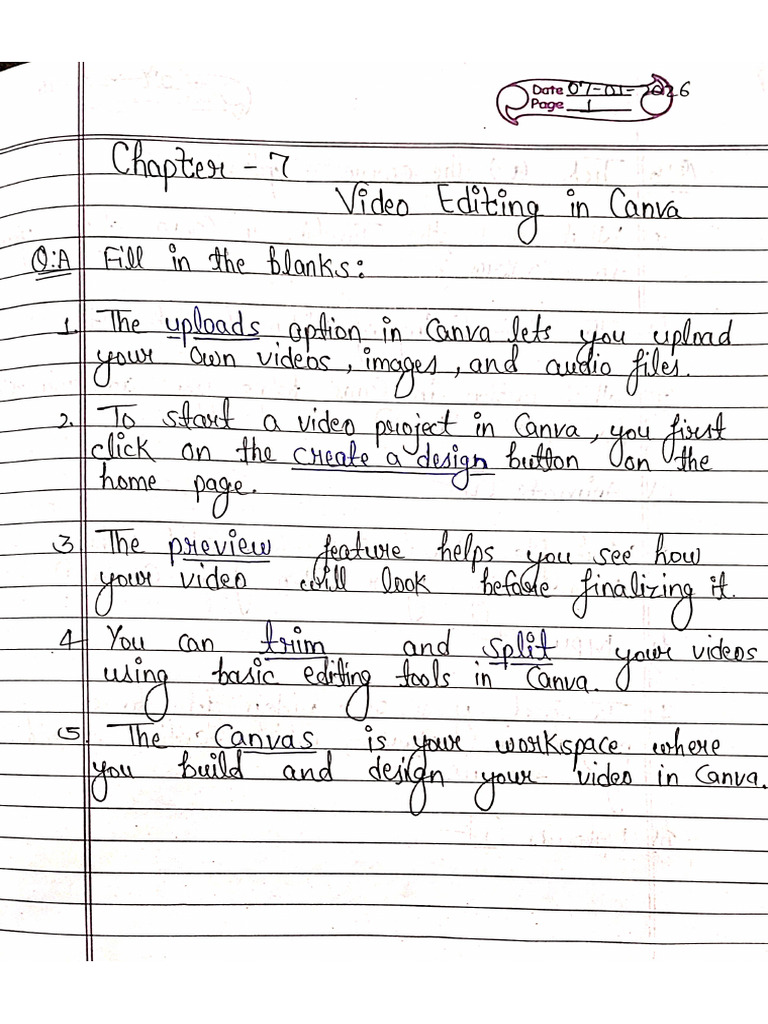 Date 07-01-2026
Page 1
Chapter - 7
Video Editing in Canva
Q:A Fill in the blanks:
1. The uploads option in Canva lets you upload
your own videos, images, and audio files.
2. To start a video project in Canva, you first
click on the create a design button on the
home page.
3 The preview feature helps you see how
your video will look before finalizing it.
4 You can trim and split your videos
using basic editing tools in Canva.
5. The Canvas is your workspace where
you build and design your video in Canva.